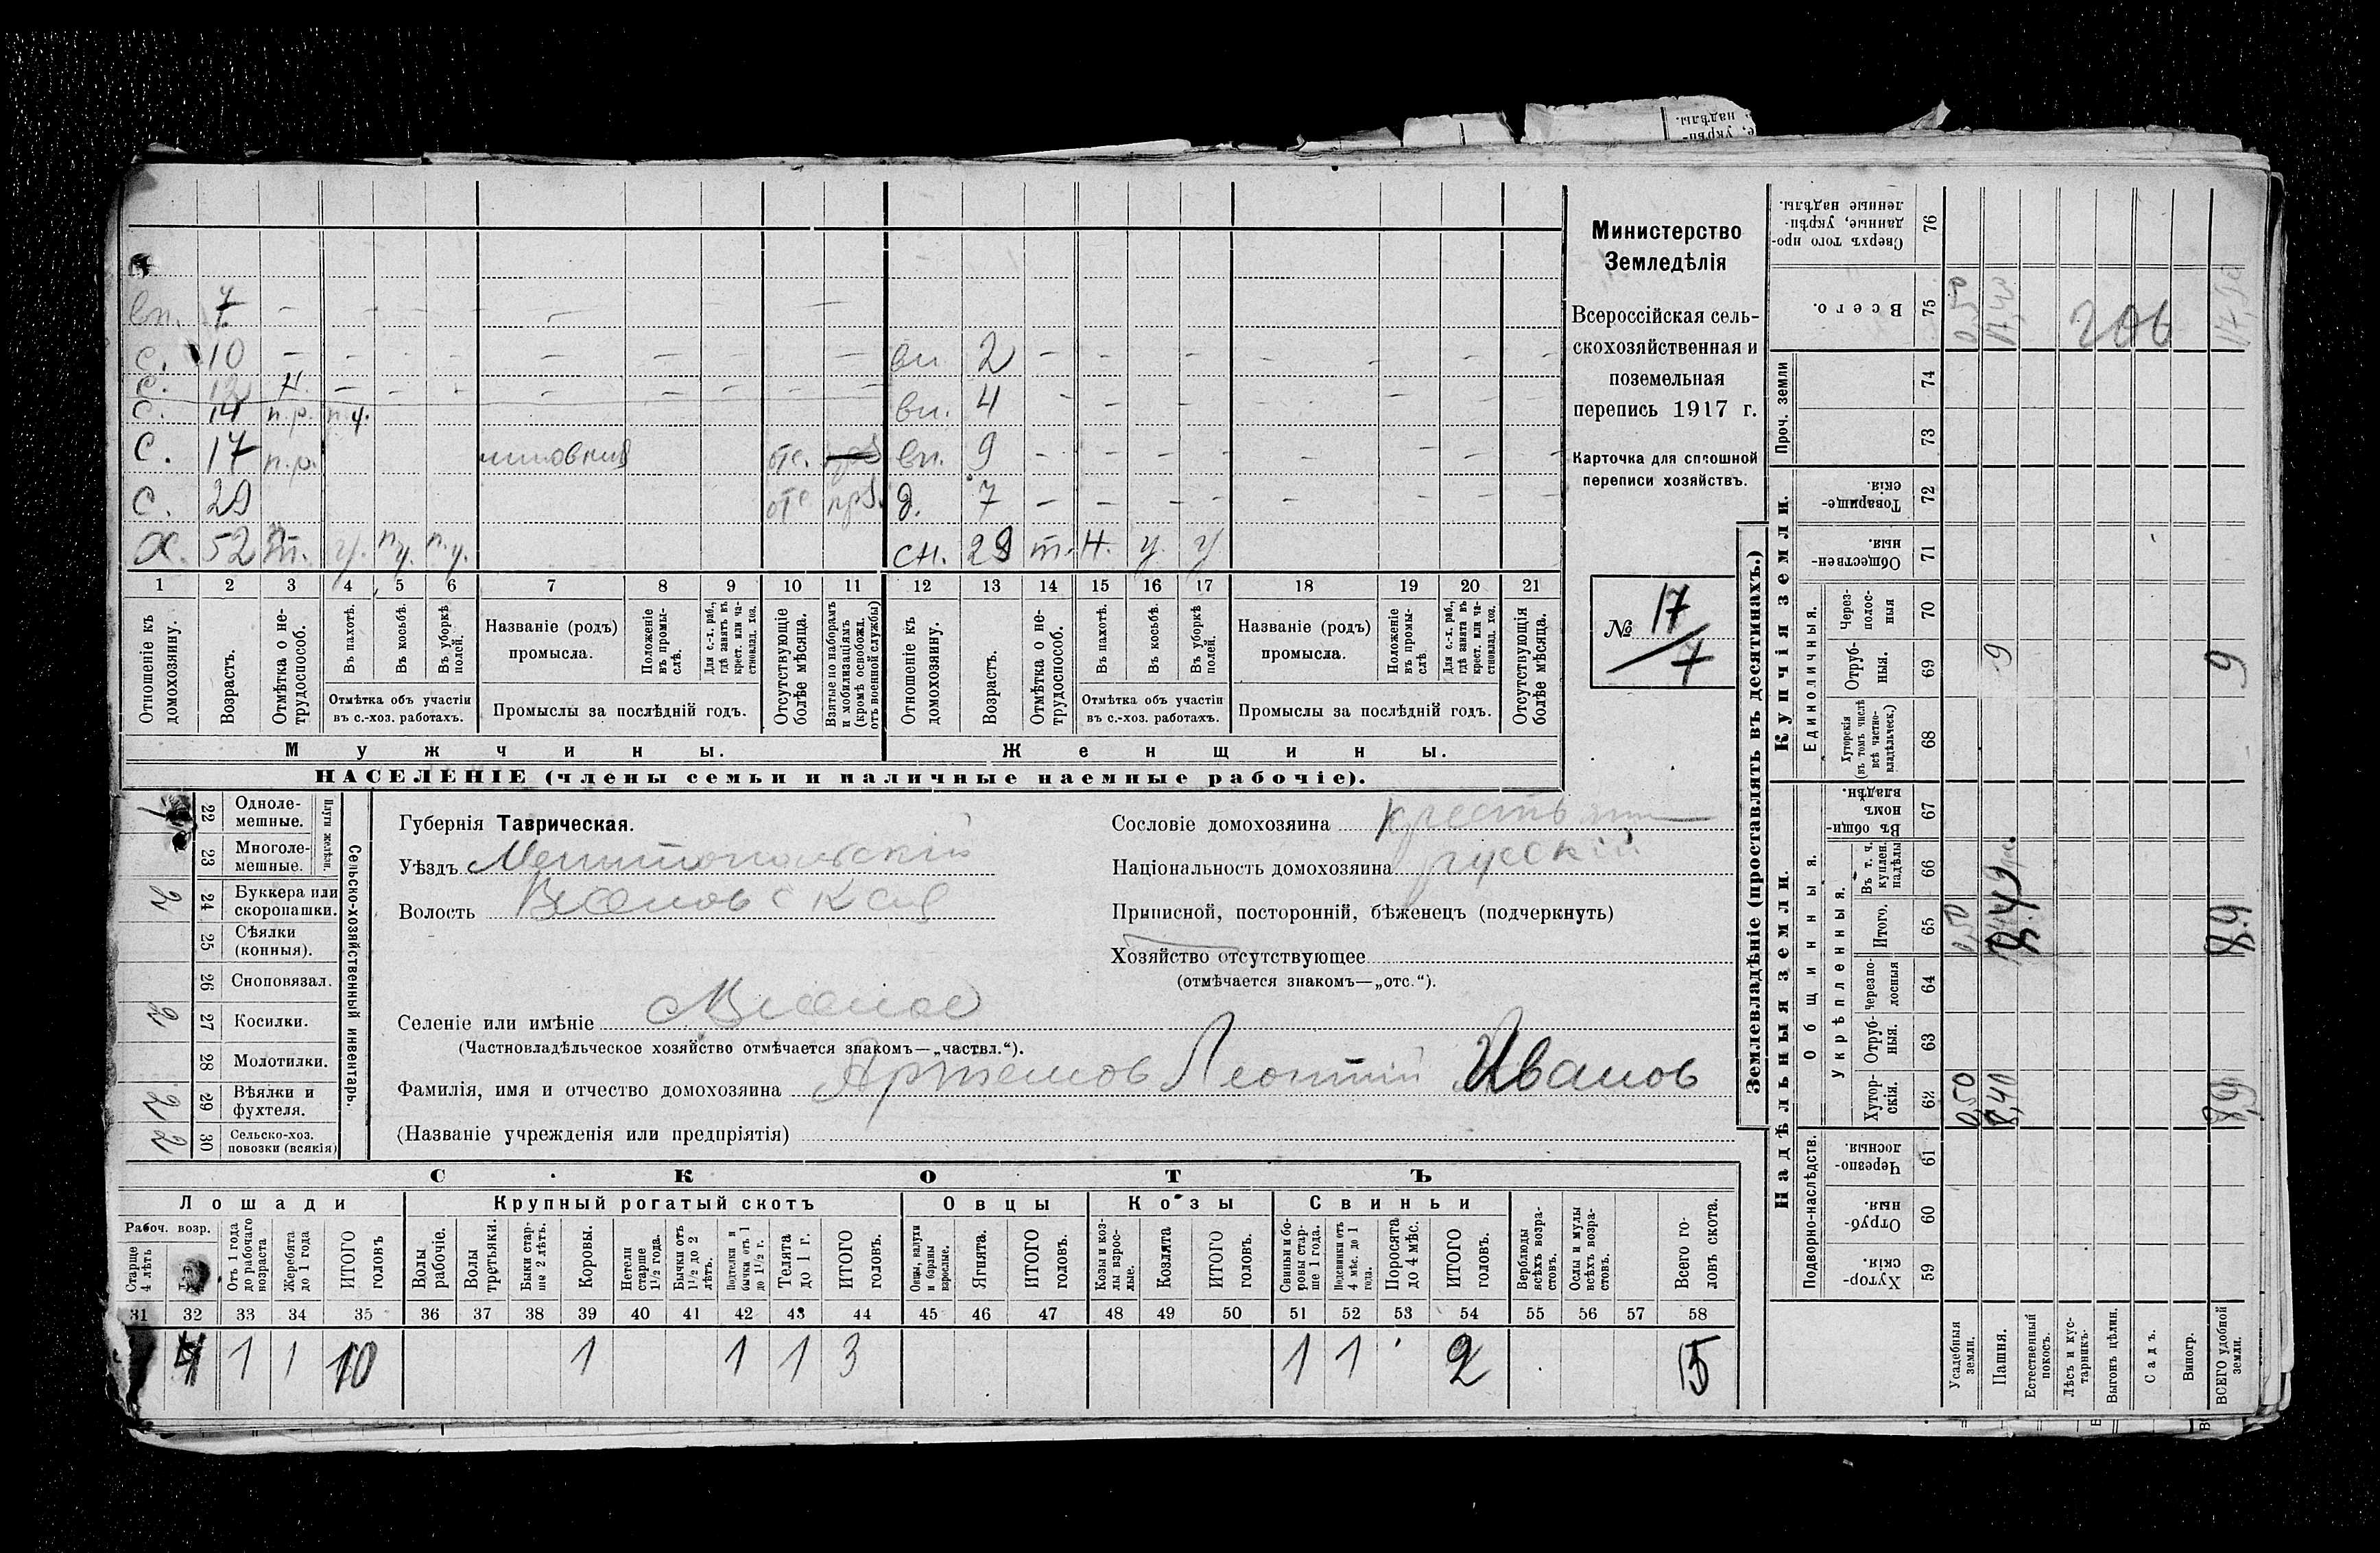 вп. 7 — — — —
с. 10 — — — — — — вн 2 — — — — — —
с. 12 н. — — — — — —
с. 14 п.р. п.у. вн. 4 — — — — — —
с. 17 п.р. отс. вн. 9 — — — — — — —
с. 29 отс прз. д. 7 — — — — — — —
х. 52 т. у. п.у. п.у. сн. 29 т. н. у. у
1 2 3 4 5 6 7 8 9 10 11 12 13 14 15 16 17 18 19 20 21
Отношеніе къ домохозяину.
Возрастъ.
Отмѣтка о не-
трудоспособ.
Въ пахотѣ.
Въ косьбѣ.
Въ уборкѣ
полей.
Отмѣтка объ участіи
въ с.-хоз. работахъ.
Названіе (родъ)
промысла.
Положеніе
въ промы-
слѣ.
Для с.-х. раб.,
гдѣ занятъ въ
крест. или ча-
стновлад. хоз.
Промыслы за послѣдній годъ.
Отсутствующіе
болѣе мѣсяца.
Взятые по наборамъ
и мобилизаціямъ
(кромѣ освобожд.
отъ военной службы)
Отношеніе къ
домохозяину.
Возрастъ.
Отмѣтка о не-
трудоспособ.
Въ пахотѣ.
Въ косьбѣ.
Въ уборкѣ
полей.
Отмѣтка объ участіи
въ с.-хоз. работахъ.
Названіе (родъ)
промысла.
Положеніе
въ промы-
слѣ
Для с.-х. раб.,
гдѣ занята въ
крест. или ча-
стновлад. хоз.
Промыслы за послѣдній годъ.
Отсутствующія
болѣе мѣсяца.
Мужчины.
Женщины.
НАСЕЛЕНІЕ (члены семьи и наличные наемные рабочіе).
Министерство
Земледѣлія
Всероссійская сель-
скохозяйственная и
поземельная
перепись 1917 г.
Карточка для сплошной
переписи хозяйствъ.
№ 17/7
Сельско-хозяйственный инвентарь.
Плуги желѣзн.
22 Одноле-
мешные.
23 Многоле-
мешные.
2 24 Буккера или
скоропашки.
25 Сѣялки
(конныя).
26 Сноповязал.
2 27 Косилки.
28 Молотилки.
2 29 Вѣялки и
фухтеля.
2 30 Сельско-хоз.
повозки (всякія)
Губернія Таврическая.
Уѣздъ Мелитопольскій
Волость
Селеніе или имѣніе
(Частновладѣльческое хозяйство отмѣчается знакомъ—„частвл.“).
Фамилія, имя и отчество домохозяина Артемов Леонтій Иванов
(Названіе учрежденія или предпріятія)
Сословіе домохозяина крестьянин
Національность домохозяина русскій
Приписной, посторонній, бѣженецъ (подчеркнуть)
Хозяйство отсутствующее
(отмѣчается знакомъ—„отс.“).
СКОТЪ
Лошади Крупный рогатый скотъ Овцы Козы Свиньи
Рабоч. возр.
Старше
4 лѣтъ
Отъ 1 года
до рабочаго
возраста
Жеребята
до 1 года
ИТОГО
головъ
Волы
рабочіе.
Волы
третьяки.
Быки стар-
ше 2 лѣтъ.
Коровы.
Нетели
старше
1½ года.
Бычки отъ
1½ до 2
лѣтъ.
Подтелки и
бычки отъ 1
до 1½ г.
Телята
до 1 г.
ИТОГО
головъ.
Овцы, валухи
и бараны
взрослые.
Ягнята.
ИТОГО
головъ.
Козы и коз-
лы взрос-
лые.
Козлята
ИТОГО
головъ.
Свиньи и бо-
ровы стар-
ше 1 года.
Подсвинки отъ
4 мѣс. до 1
года.
Поросята
до 4 мѣс.
ИТОГО
головъ.
Верблюды
всѣхъ возра-
стовъ.
Ослы и мулы
всѣхъ возра-
стовъ.
Всего го-
ловъ скота.
31 32 33 34 35 36 37 38 39 40 41 42 43 44 45 46 47 48 49 50 51 52 53 54 55 56 57 58
4 1 1 10 1 1 1 3 1 1 2 15
Землевладѣніе (проставлять въ десятинахъ.)
Купчія земли.
Надѣльныя земли.
Сверхъ того про-
данные, укрѣп-
ленные надѣлы.
76
Всего.
75 0,50 17,40 206 17,90
Проч. земли
74
73
Товарище-
скія.
72
Обществен-
ныя.
71
Единоличныя.
Через-
полос-
ныя
70
Отруб-
ныя.
69 9 9
Хуторскія
(въ томъ числѣ
всѣ частно-
владѣльческ.)
68
Общинныя.
Въ общин-
номъ
владѣн.
67
Укрѣпленныя.
Въ т. ч.
куплен.
надѣлы
66
Итого.
65 0,50 8.4 8.9
Черезпо-
лосныя
64
Отруб-
ныя.
63
Хутор-
скія.
62 0,50 8,40 8,9
Подворно-наслѣдств.
Черезпо-
лосныя.
61
Отруб-
ныя.
60
Хутор-
скія.
59
Усадебныя
земли.
Пашня.
Естественный
покосъ.
Лѣсъ и кус-
тарникъ.
Выгонъ цѣлин.
Садъ.
Виногр.
ВСЕГО удобной
земли.